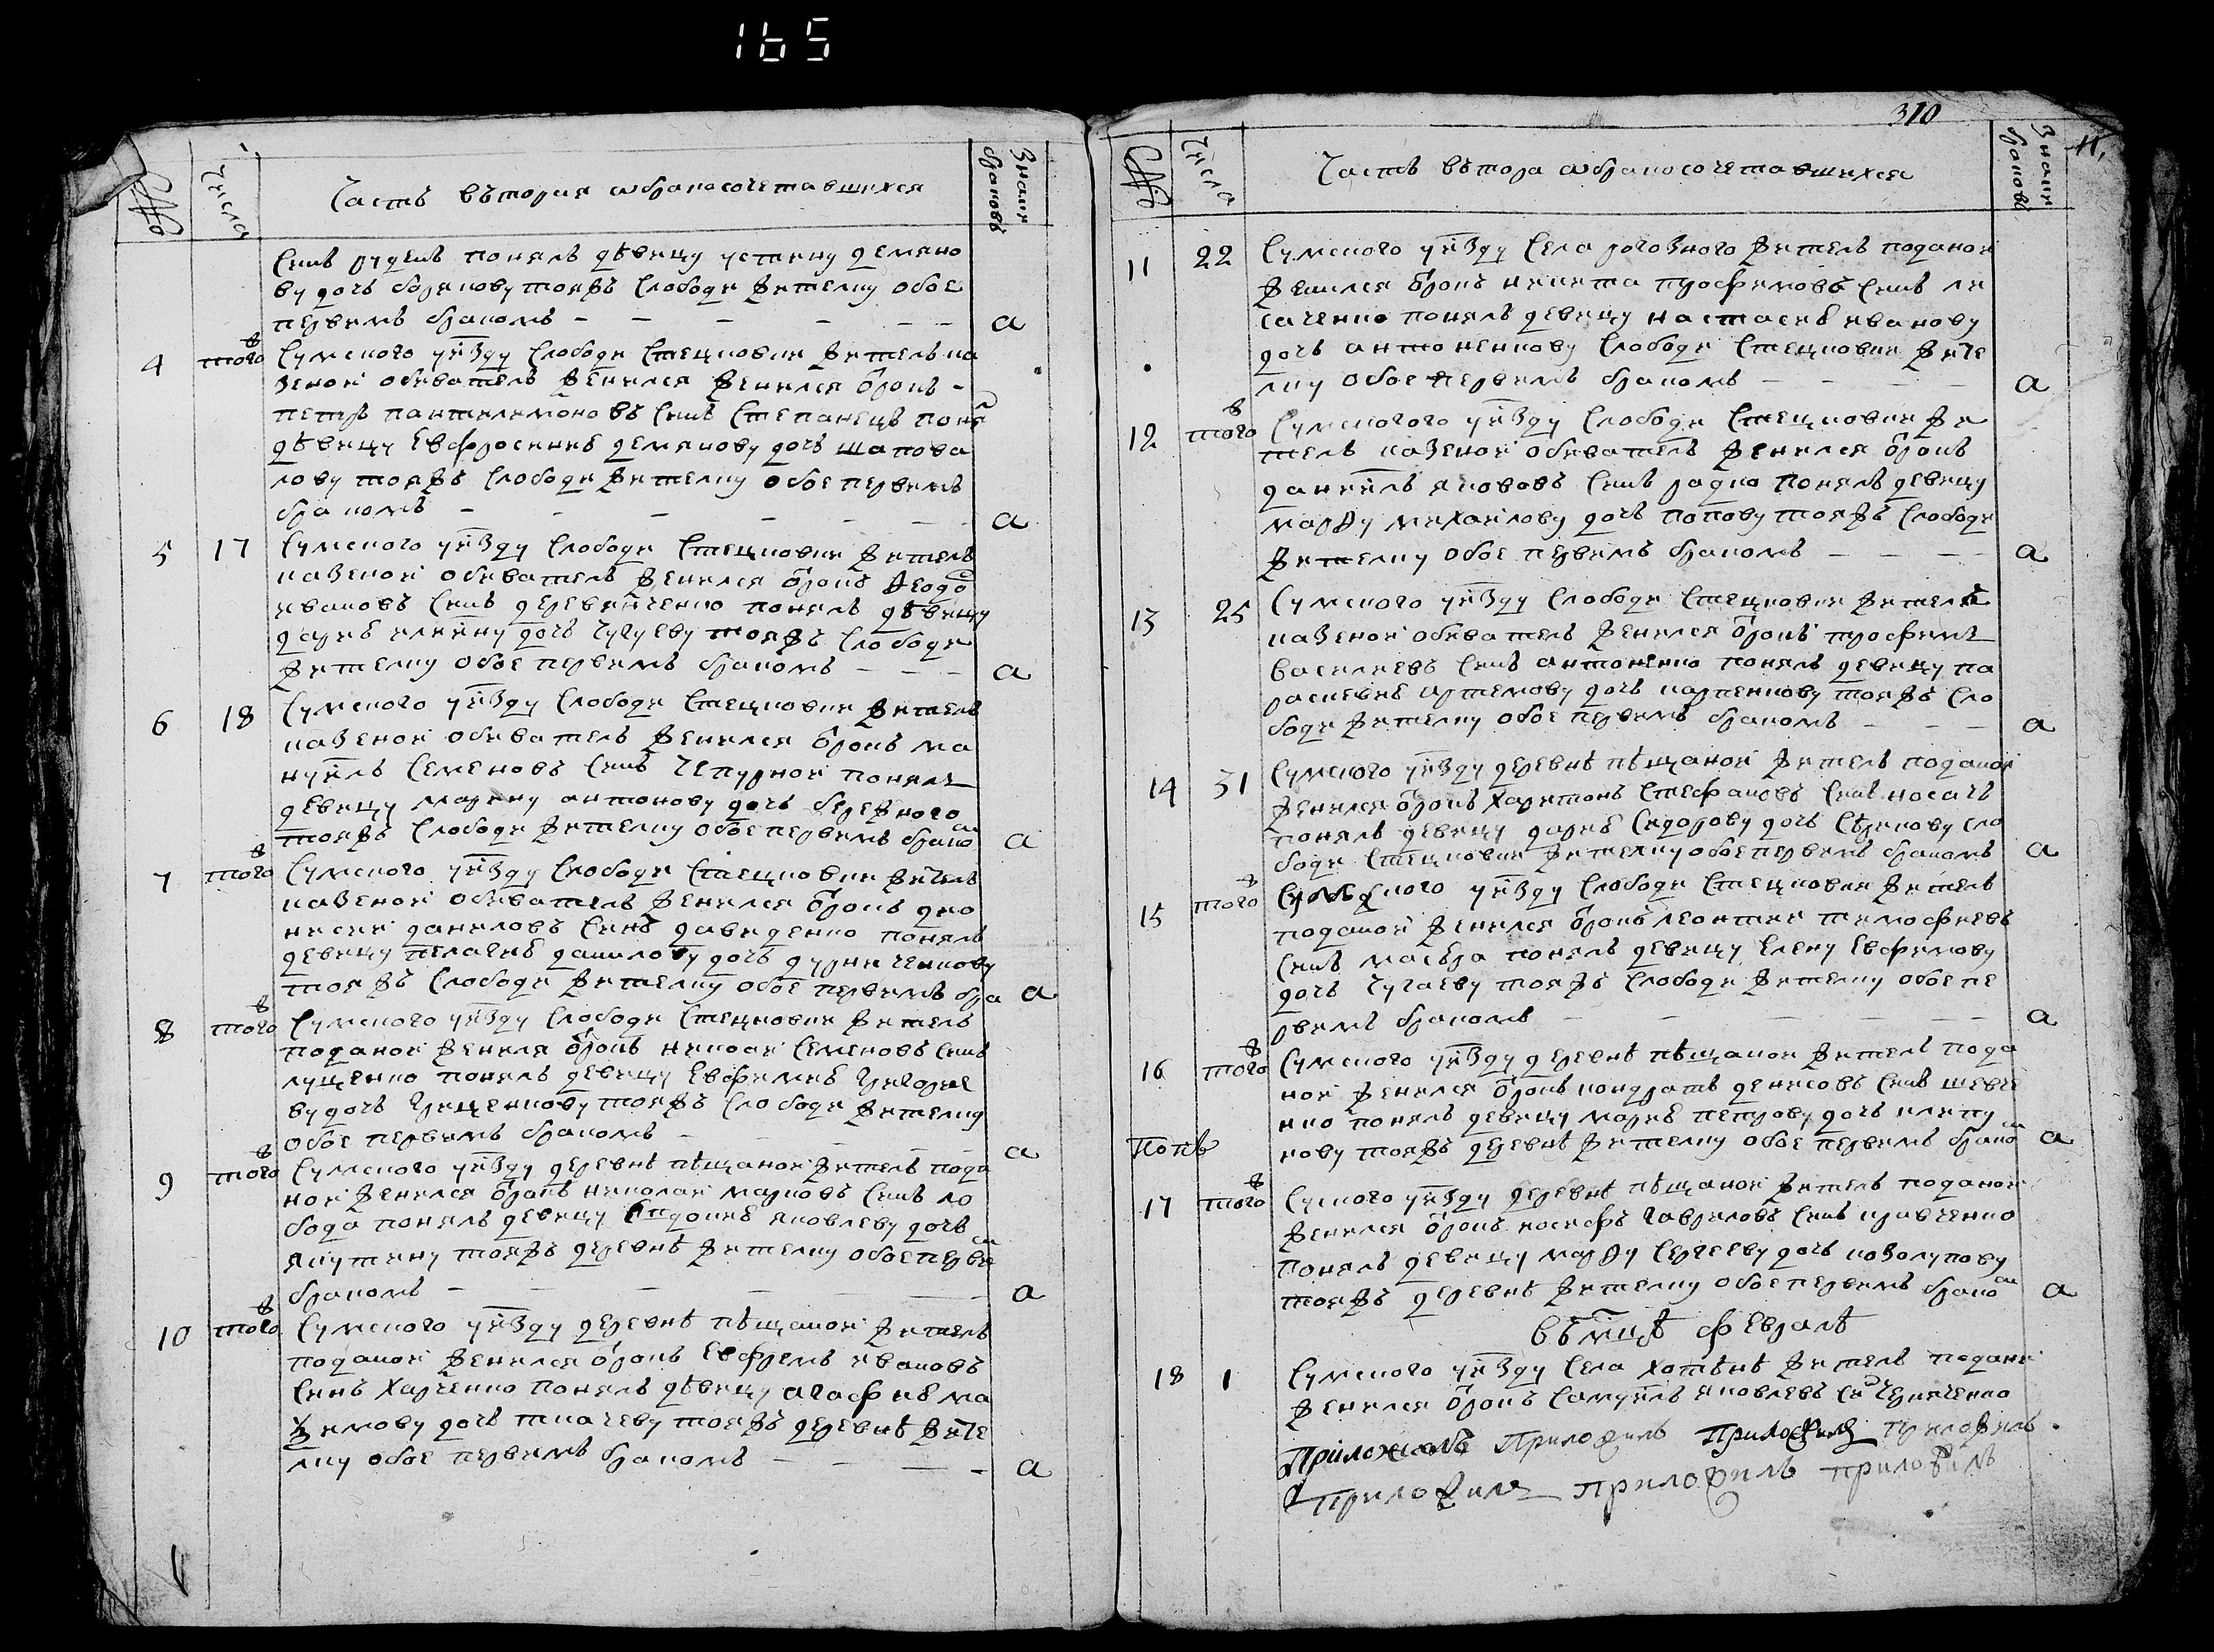 165
№ числа Часть вътория о бракосочетавшихся Знаки браковъ
синъ рудеш понялъ дѣвицу устину демяно
ву дочь борикову тояжъ слободи жителку обое
первимъ бракомъ — — — — — — а
4 тогож Сумского уѣзду слободи Стецковки житель ка
зеной обиватель женился женился отрокъ
петръ пантелимоновъ синъ степанецъ поня
дѣвицу Евфросинию демянову дочь шапова
лову тояжъ слободи жителку обое первимъ
бракомъ — — — — — — а
5 17 Сумского уѣзду слободи Стецковки житель
казеной обиватель женился отрокъ Ѳеодо
ивановъ синъ деревянченко понялъ дѣвицу
дарию илиину дочь чугуеву тояжъ слободи
жителку обое первимъ бракомъ — — а
6 18 Сумского уѣзду слободи Стецковки житель
казеной обиватель женился отрокъ ма
нуилъ семеновъ синъ чепурной понялъ
девицу марину антонову дочь бережного
тояжъ слободи жителку обое первимъ бракомъ а
7 тогож Сумского уѣзду слободи Стецковки житель
казеной обиватель женился отрокъ дио
нисий даниловъ синъ давиденко понялъ
девицу пелагию данилову дочь дудниченкову
тояжъ слободи жителку обое первимъ бра а
8 тогож Сумского уѣзду слободи Стецковки житель
поданой женился отрокъ николай семеновъ синъ
лущенко понялъ девицу Евфимию григорие
ву дочь грищенкову тояжъ слободи жителку
обое первимъ бракомъ — — — — а
9 тогож Сумского уѣзду деревнѣ пѣщаной житель пода
ной женился отрокъ николай марковъ синъ ло
бода понялъ девицу Евдокию яковлеву дочь
якутину тояжъ деревнѣ жителку обое первим
бракомъ — — — — — а
10 тогож Сумского уѣзду деревнѣ пѣщаной житель
поданой женился отрокъ Евфремъ ивановъ
синъ харченко понялъ дѣвицу агафию ма
ѯимову дочь ткачеву тояжъ деревнѣ жите
лку обое первимъ бракомъ — — — — а
310
11.
№ Числа Часть вътора о бракосочетавшихся Знаки браковъ
11 22 Сумского уѣзду села рогозного житель поданой
женился отрокъ никита трофимовъ синъ ли
саченко понялъ девицу настасию иванову
дочь антоненкову слободи Стецковки жите
лку обое первимъ бракомъ — — — — а
12 тогож Сумского уѣзду слободи Стецковки жи
тель казеной обиватель женился отрокъ
даниилъ якововъ синъ радко понялъ девицу
марѳу михайлову дочь попову тояжъ слободи
жителку обое первимъ бракомъ — — — — а
13 25 Сумского уѣзду слободи Стецковки житель
казеной обиватель женился отрокъ трофимъ
василиевъ синъ антоненко понялъ девицу па
раскевию артемову дочь карпенкову тояжъ сло
боди жителку обое первимъ бракомъ — — — а
14 31 Сумского уѣзду деревнѣ пѣщаной житель поданой
женился отрокъ харитонъ стефановъ синъ носачъ
понялъ девицу дарию сидорову дочь сѣрикову сло
боди Стецковки жителку обое первимъ бракомъ а
15 тогож Сумского уѣзду слободи Стецковки житель
поданой женился отрокъ леонтий тимофиевъ
синъ понялъ девицу Елену Евфимову
дочь чугаеву тояжъ слободи жителку обое пе
рвимъ бракомъ — — — — — — а
16 тогож Сумского уѣзду деревнѣ пѣщаной житель пода
ной женился отрокъ кондратъ денисовъ синъ шевче
нко понялъ девицу марию петрову дочь
нову тояжъ деревнѣ жителку обое первимъ бракомъ а
Попъ
17 тогож Сумского уѣзду деревнѣ пѣщаной житель поданой
женился отрокъ иосифъ гавриловъ синъ кравченко
понялъ девицу марѳу сергееву дочь козолупову
тояжъ деревнѣ жителку обое первимъ бракомъ а
въ мцѣ февралѣ
18 1 Сумского уѣзду села хотѣнѣ житель подани
женился отрокъ самуилъ яковлевъ си черниченко
Приложилъ Приложилъ Приложилъ приложилъ
приложилъ приложилъ приложилъ